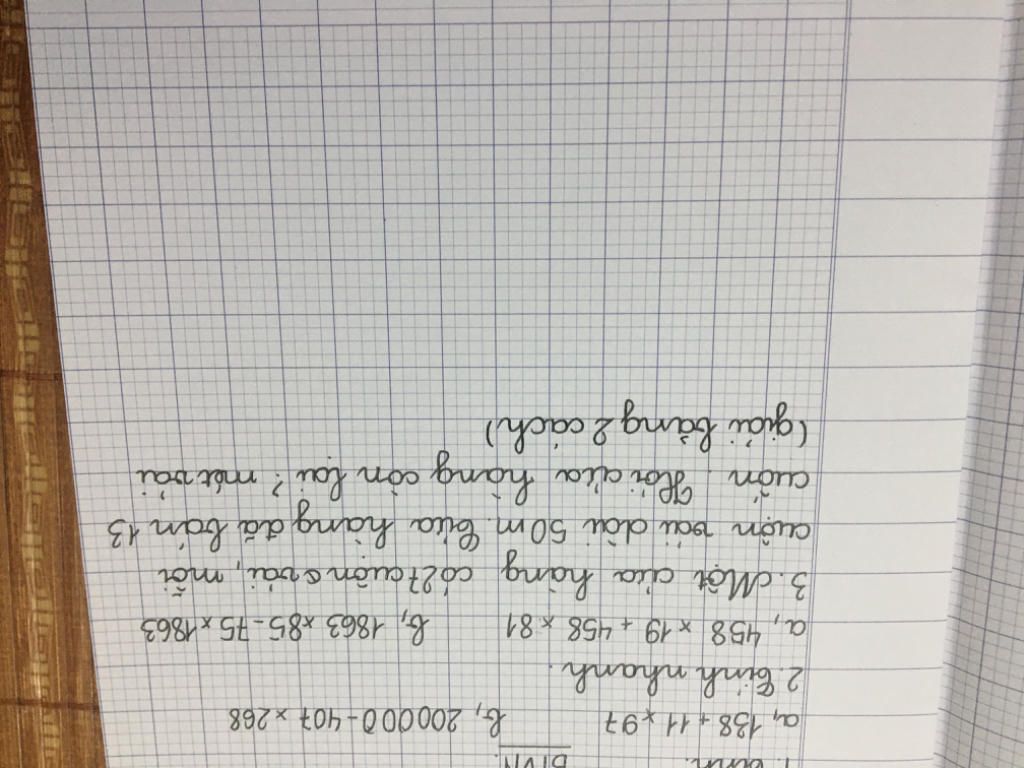 BTVN.
a, 138 + 11 x 97 b, 200000 - 407 x 268
2. Tính nhanh.
a, 458 x 19 + 458 x 81 b, 1863 x 85 - 75 x 1863
3. Một cửa hàng có 27 cuộn vải, mỗi
cuộn vải dài 50m. Cửa hàng đã bán 13
cuộn. Hỏi cửa hàng còn lại ? mét vải
(giải bằng 2 cách)